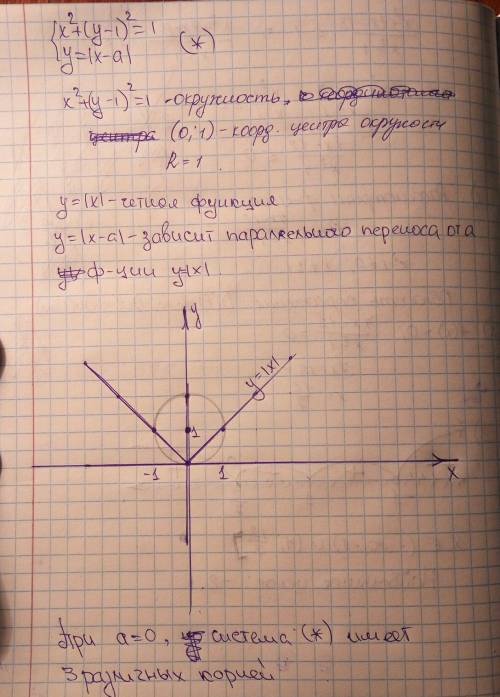 x²+(y-1)²=1
y=|x-a| (*)
x²+(y-1)²=1 -окружность,
(0;1)-коорд. центра окружости
R=1.
y=|x|-четная функция
y=|x-a|-зависит параллельного переноса от а
ф-ции y=|x|.
y
y=|x|
1
-1 1 x
При a=0, система (*) имеет
3 различных корней